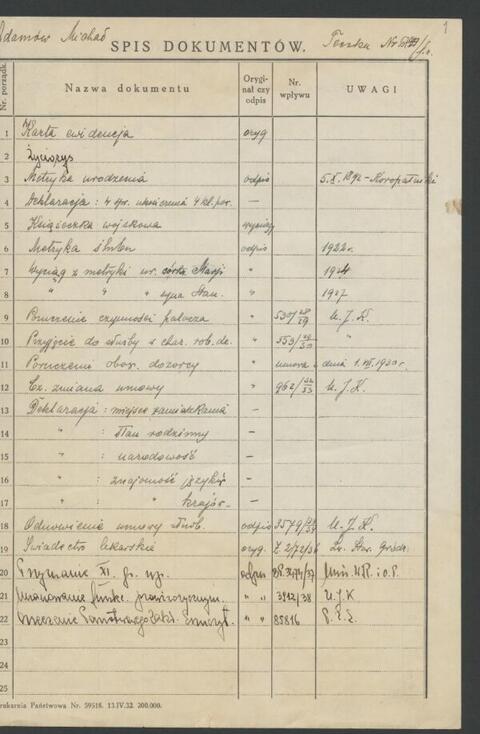 Adamów Michał
SPIS DOKUMENTÓW. Teczka Nr
1
Nr. porządk. Nazwa dokumentu Orygi- nał czy odpis Nr. wpływu UWAGI
1 Karta ewidencja oryg
2 Życiorys
3 Metryka urodzenia odpis 5.X.1892
4 Deklaracja: 4
5 Książeczka wojskowa wyciąg
6 Metryka ślubu odpis 1922 r.
7 Wyciąg z metryki ur. córki Marji " 1924
8 " " " syna Stan. " 1927
9 Poruczenie czynności palacza " 530/28/29 U.J.K.
10 Przyjęcie do służby s char. rob. " 553/29/30
11 Poruczenie obow. dozorcy " umowa z dnia 1.VII.1930 r.
12 Cz. zmiana umowy " 962/32/33 U.J.K.
13 Deklaracja: miejsce zamieszkania —
14 " : stan rodzinny —
15 " : narodowość —
16 " : znajomość języków —
17 " : " krajów —
18 Odnowienie umowy służb. odpis 3579 U.J.K.
19 Świadectwo lekarskie oryg.
20 Przyznanie XI. gr. up. odpis Min. W.R. i O.P.
21 Mianowanie funkc. prowizorycznym. " " 3912/38 U.J.K
22 " " 85816
23
24
25
Drukarnia Państwowa Nr. 59518. 13.IV.32. 200.000.